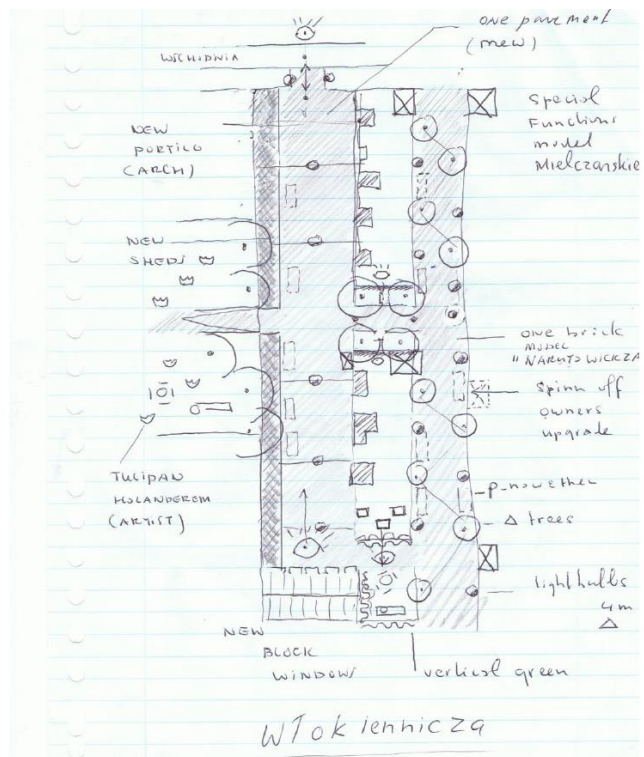 one pavement
(new)
WSCHODNIA
Special
Functions
model
Mielczarskie
NEW
PORTICO
(ARCH)
NEW
SHEDS
one brick
MODEL
"NARUTOWICZA
Spinn off
owners
upgrade
TULIPAN
HOLANDEREM
(ARTIST)
Δ trees
lightbulbs
4m
Δ
NEW
BLOCK
WINDOWS
vertical green
WŁOKIENNICZA